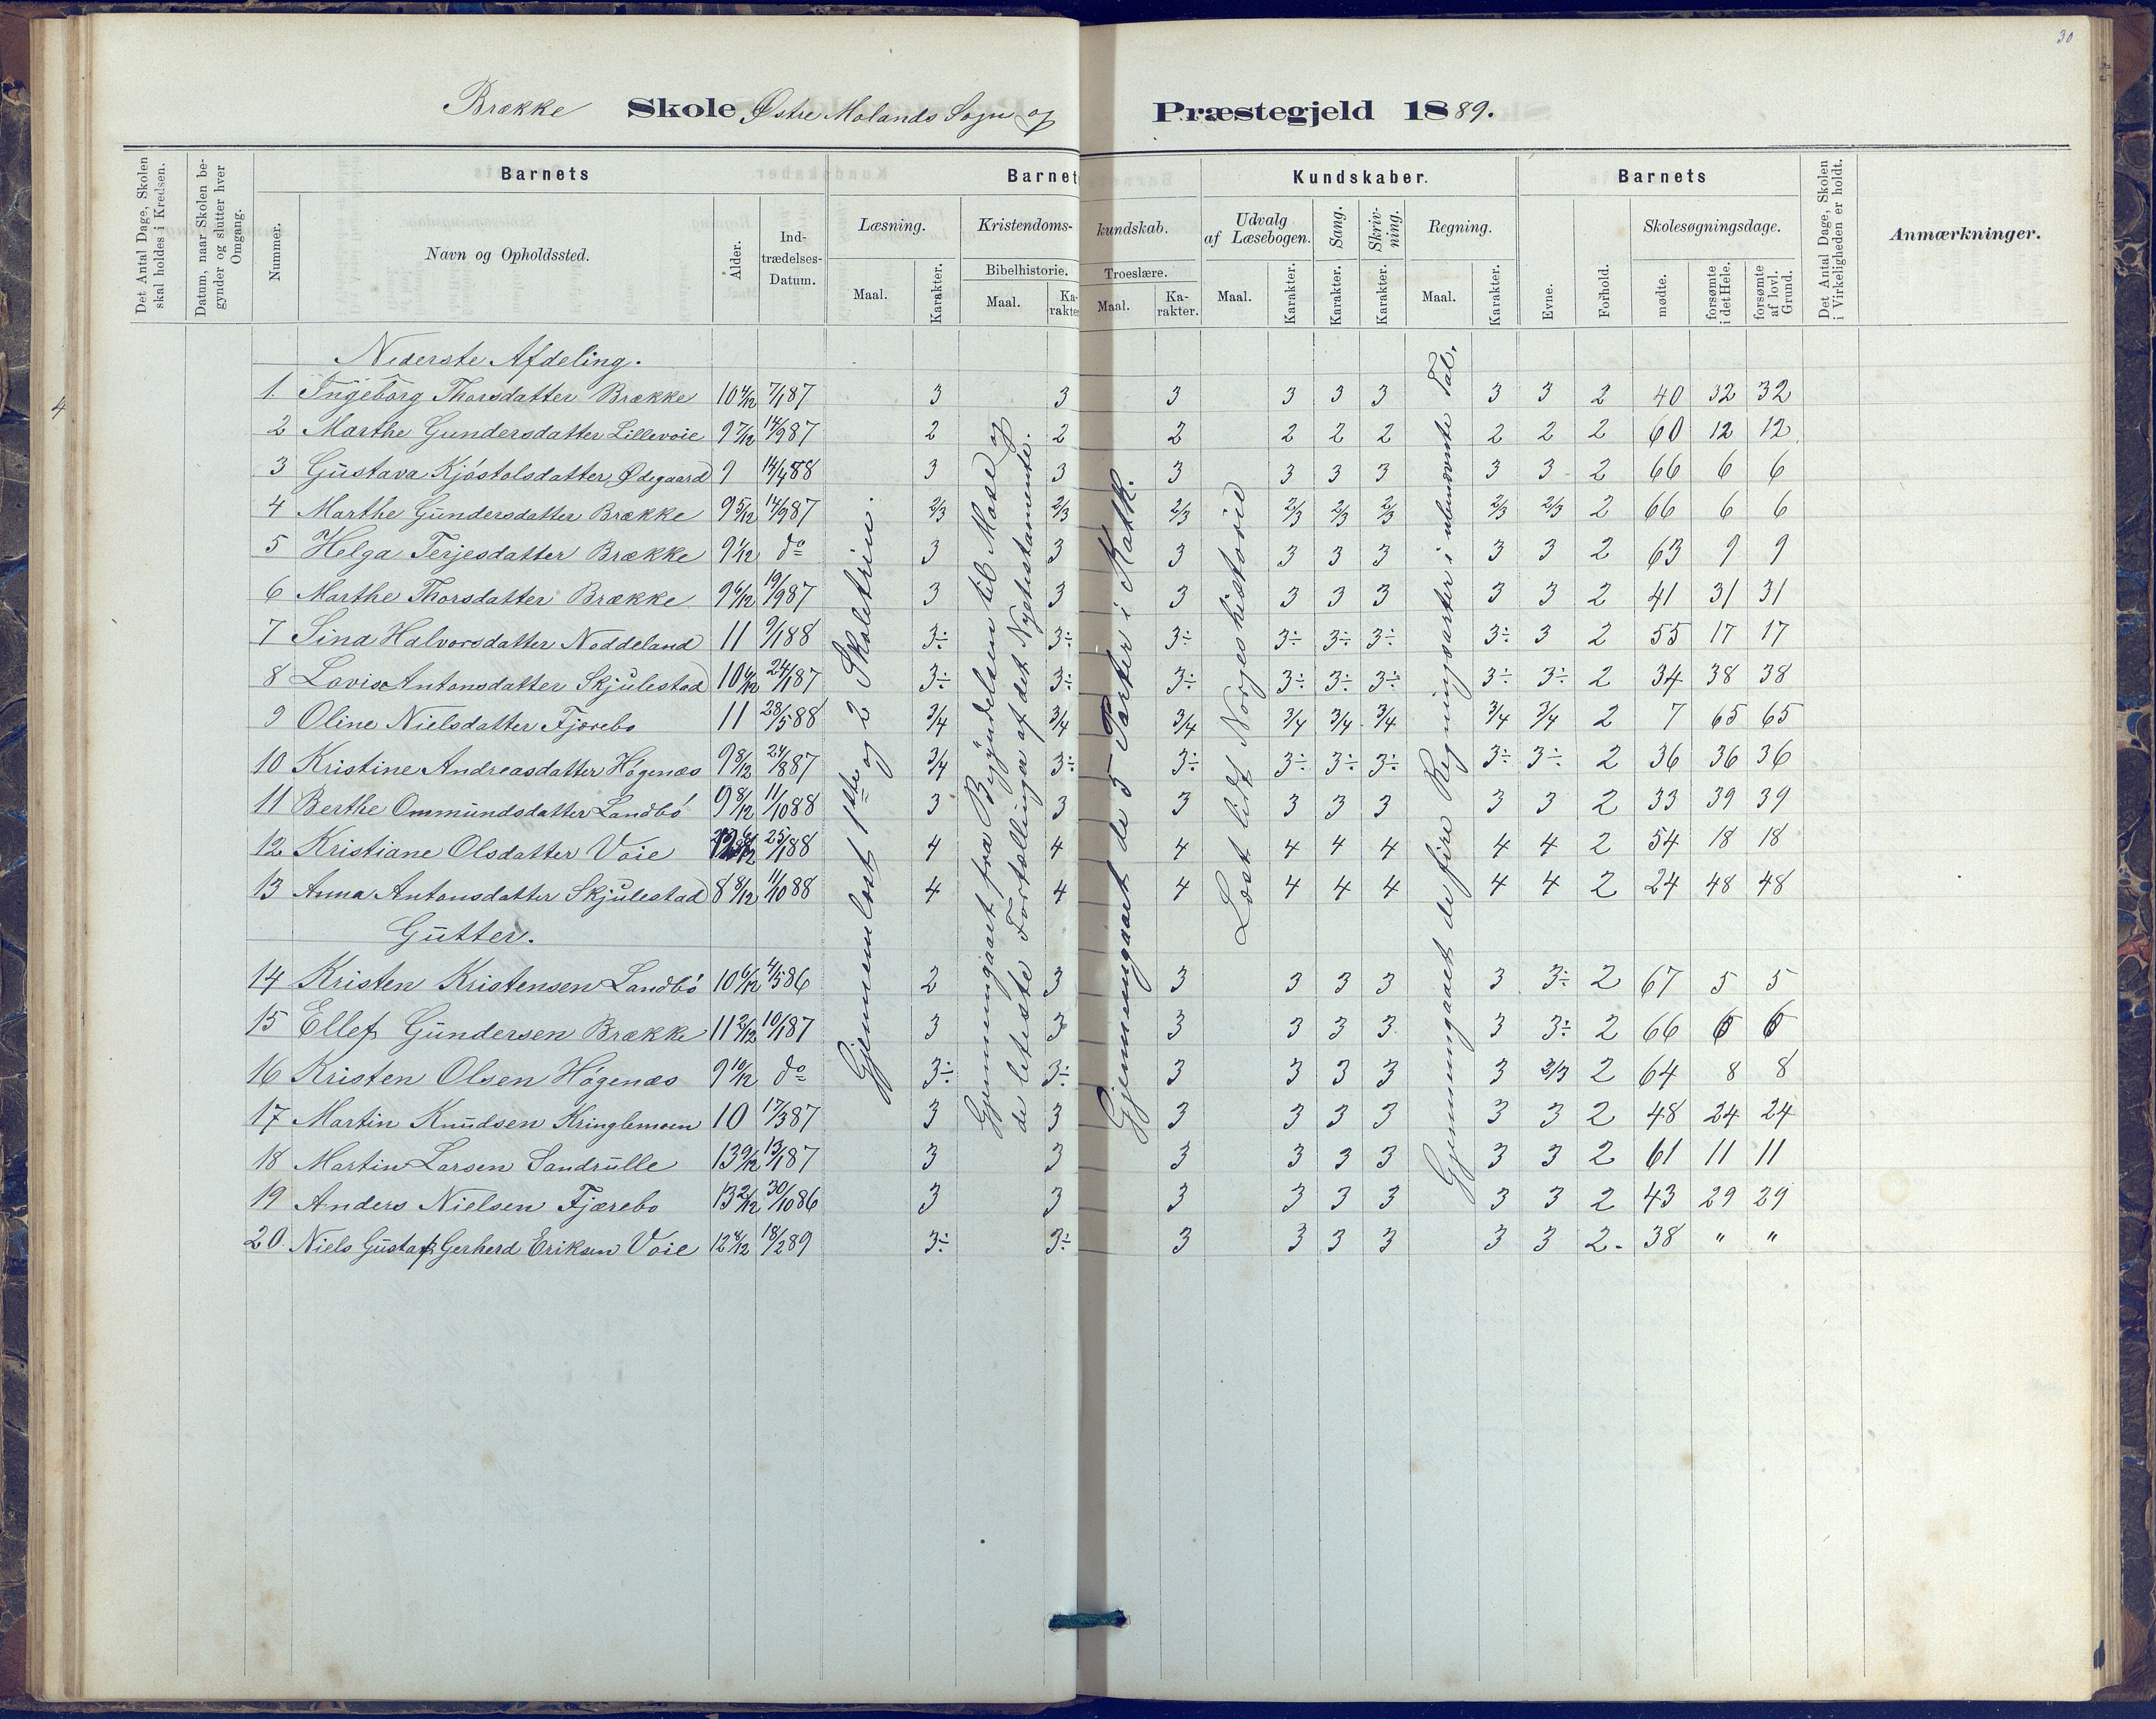 30
Brække Skole Østre Molands Sogn og Præstegjeld 1889.
Det Antal Dage, Skolen skal holdes i Kredsen.
Datum, naar Skolen begynder og slutter hver Omgang.
Barnets
Nummer.
Navn og Opholdssted.
Alder.
Indtrædelses-Datum.
Barnets Kundskaber.
Læsning.
Maal.
Karakter.
Kristendomskundskab.
Bibelhistorie.
Maal.
Karakter.
Troeslære.
Maal.
Karakter.
Udvalg af Læsebogen.
Maal.
Karakter.
Sang.
Karakter.
Skrivning.
Karakter.
Regning.
Maal.
Karakter.
Barnets
Evne.
Forhold.
Skolesøgningsdage.
mødte.
forsømte i det Hele.
forsømte af lovl. Grund.
Det Antal Dage, Skolen i Virkeligheden er holdt.
Anmærkninger.
4
Nederste Afdeling.
1. Ingeborg Thorsdatter Brække 10 4/12 7/1 87 3 3 3 3 3 3 3 3 2 40 32 32
2 Marthe Gundersdatter Lillevoie 9 7/12 14/9 87 2 2 2 2 2 2 2 2 2 60 12 12
3 Gustava Kjøstolsdatter Ødegaard 9 14/4 88 3 3 3 3 3 3 3 3 2 66 6 6
4 Marthe Gundersdatter Brække 9 5/12 14/9 87 2/3 2/3 2/3 2/3 2/3 2/3 2/3 2/3 2 66 6 6
5 Helga Terjesdatter Brække 9 1/12 do 3 3 3 3 3 3 3 3 2 63 9 9
6 Marthe Thorsdatter Brække 9 6/12 19/9 87 3 3 3 3 3 3 3 3 2 41 31 31
7 Sina Halvorsdatter Neddeland 11 9/1 88 3÷ 3÷ 3÷ 3÷ 3÷ 3÷ 3÷ 3 2 55 17 17
8 Lovise Antonsdatter Skjulestad 10 6/12 24/1 87 3÷ 3÷ 3÷ 3÷ 3÷ 3÷ 3÷ 3÷ 2 34 38 38
9 Oline Nielsdatter Fjærebo 11 28/5 88 3/4 3/4 3/4 3/4 3/4 3/4 3/4 3/4 2 7 65 65
10 Kristine Andreasdatter Høgenæs 9 8/12 24/8 87 3/4 3÷ 3÷ 3÷ 3÷ 3÷ 3÷ 3÷ 2 36 36 36
11 Berthe Ommundsdatter Landbø 9 8/12 11/10 88 3 3 3 3 3 3 3 3 2 33 39 39
12 Kristiane Olsdatter Voie 25/1 88 4 4 4 4 4 4 4 4 2 54 18 18
13 Anna Antonsdatter Skjulestad 8 8/12 11/10 88 4 4 4 4 4 4 4 4 2 24 48 48
Gutter.
14 Kristen Kristensen Landbø 10 6/12 4/5 86 2 3 3 3 3 3 3 3÷ 2 67 5 5
15 Ellef Gundersen Brække 11 2/12 10/1 87 3 3 3 3 3 3 3 3÷ 2 66 6 6
16 Kristen Olsen Høgenæs 9 10/12 do 3÷ 3÷ 3 3 3 3 3 2/3 2 64 8 8
17 Martin Knudsen Kringlemoen 10 17/3 87 3 3 3 3 3 3 3 3 2 48 24 24
18 Martin Larsen Sandrulle 13 9/12 13/1 87 3 3 3 3 3 3 3 3 2 61 11 11
19 Anders Nielsen Fjærebo 13 2/12 30/10 86 3 3 3 3 3 3 3 3 2 43 29 29
20. Niels Gustaf Gerherd Eriksen Voie 12 8/12 18/2 89 3÷ 3÷ 3 3 3 3 3 3 2. 38 " "
Gjennemlæst 1ste og 2 Skoletrin.
Gjennemgaaet fra Begyndelsen til Mose og
de leteste Fortællinger af det Nyetestamente.
Gjennemgaaet de 5 Parter i Katk.
Læst lidt Norgeshistorie
Gjennemgaaet de fire Regningsarter i ubenævnte Tal.